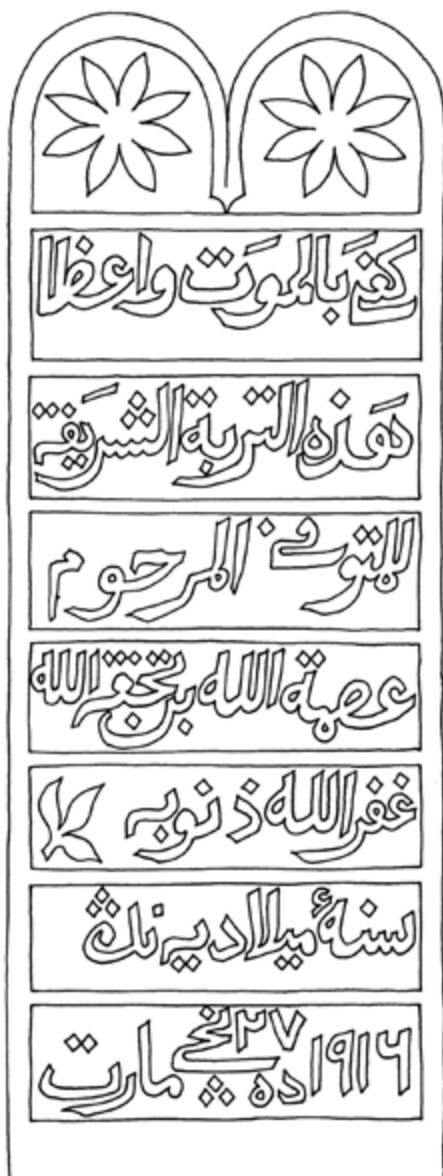 كفىَ بَالموَت واعظا
هَذه التربة الشريفة
للمتوفى المرحوم
عصمة الله بن تحفة الله
غفر الله ذنوبه
سنهٔ ميلاديه نڭ
١٩١٦ ده ٢٧ نچي مارت